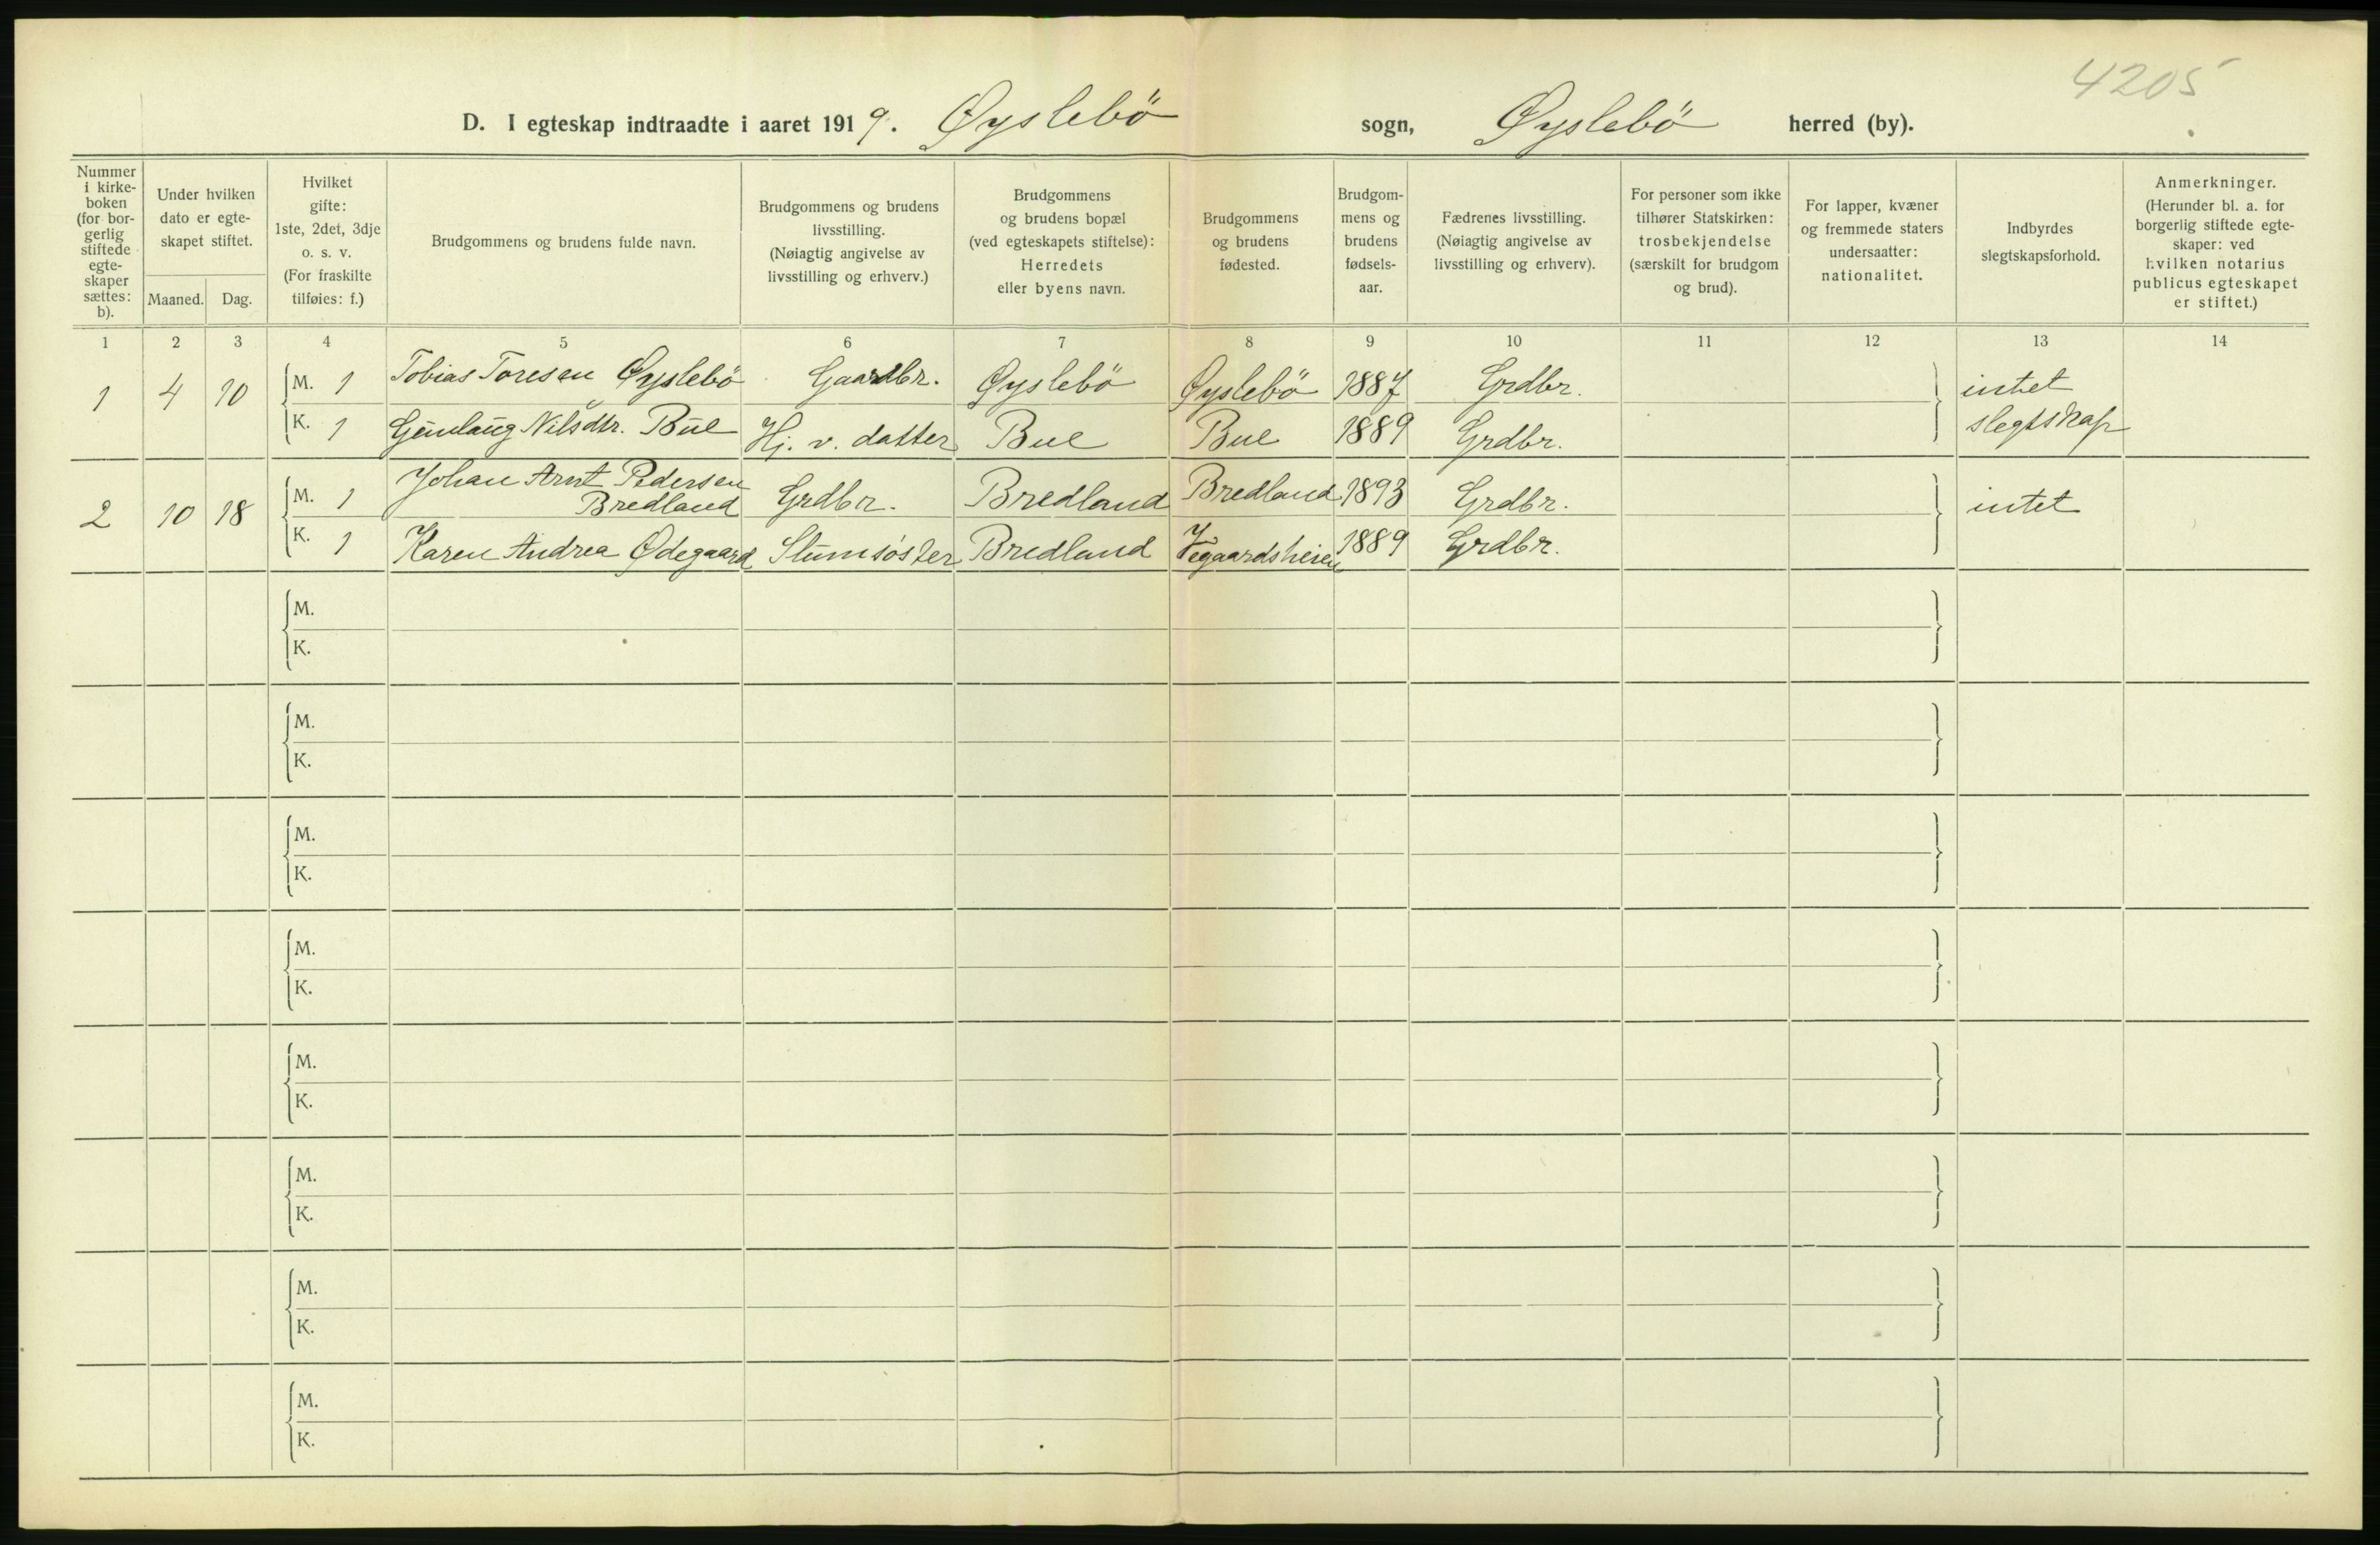 4205
D. I egteskap indtraadte i aaret 1919. Øyslebö sogn, Øyslebö herred (by).
Nummer i kirke- boken (for bor- gerlig stiftede egte- skaper sættes: b).
Under hvilken dato er egte- skapet stiftet.
Maaned. Dag.
Hvilket gifte: 1ste, 2det, 3dje o. s. v. (For fraskilte tilføies: f.)
Brudgommens og brudens fulde navn.
Brudgommens og brudens livsstilling. (Nøiagtig angivelse av livsstilling og erhverv.)
Brudgommens og brudens bopæl (ved egteskapets stiftelse): Herredets eller byens navn.
Brudgommens og brudens fødested.
Brudgom- mens og brudens fødsels- aar.
Fædrenes livsstilling. (Nøiagtig angivelse av livsstilling og erhverv).
For personer som ikke tilhører Statskirken: trosbekjendelse (særskilt for brudgom og brud).
For lapper, kvæner og fremmede staters undersaatter: nationalitet.
Indbyrdes slegtskapsforhold.
Anmerkninger. (Herunder bl. a. for borgerlig stiftede egte- skaper: ved hvilken notarius publicus egteskapet er stiftet.)
1 2 3 4 5 6 7 8 9 10 11 12 13 14
1 4 10 M. 1 Tobias Toresen Øyslebö Gaardbr. Øyslebö Øyslebö 1887 Grdbr. intet
K. 1 Gunlaug Nilsdtr. Bue Hj. v. datter Bue Bue 1889 Grdbr. slegtskap
2 10 18 M. 1 Johan Arnt Pedersen Bredland Grdbr. Bredland Bredland 1893 Grdbr. intet
K. 1 Karen Andrea Ødegaard Stumsöster Bredland Vegaardsheien 1889 Grdbr.
M.
K.
M.
K.
M.
K.
M.
K.
M.
K.
M.
K.
M.
K.
M.
K.